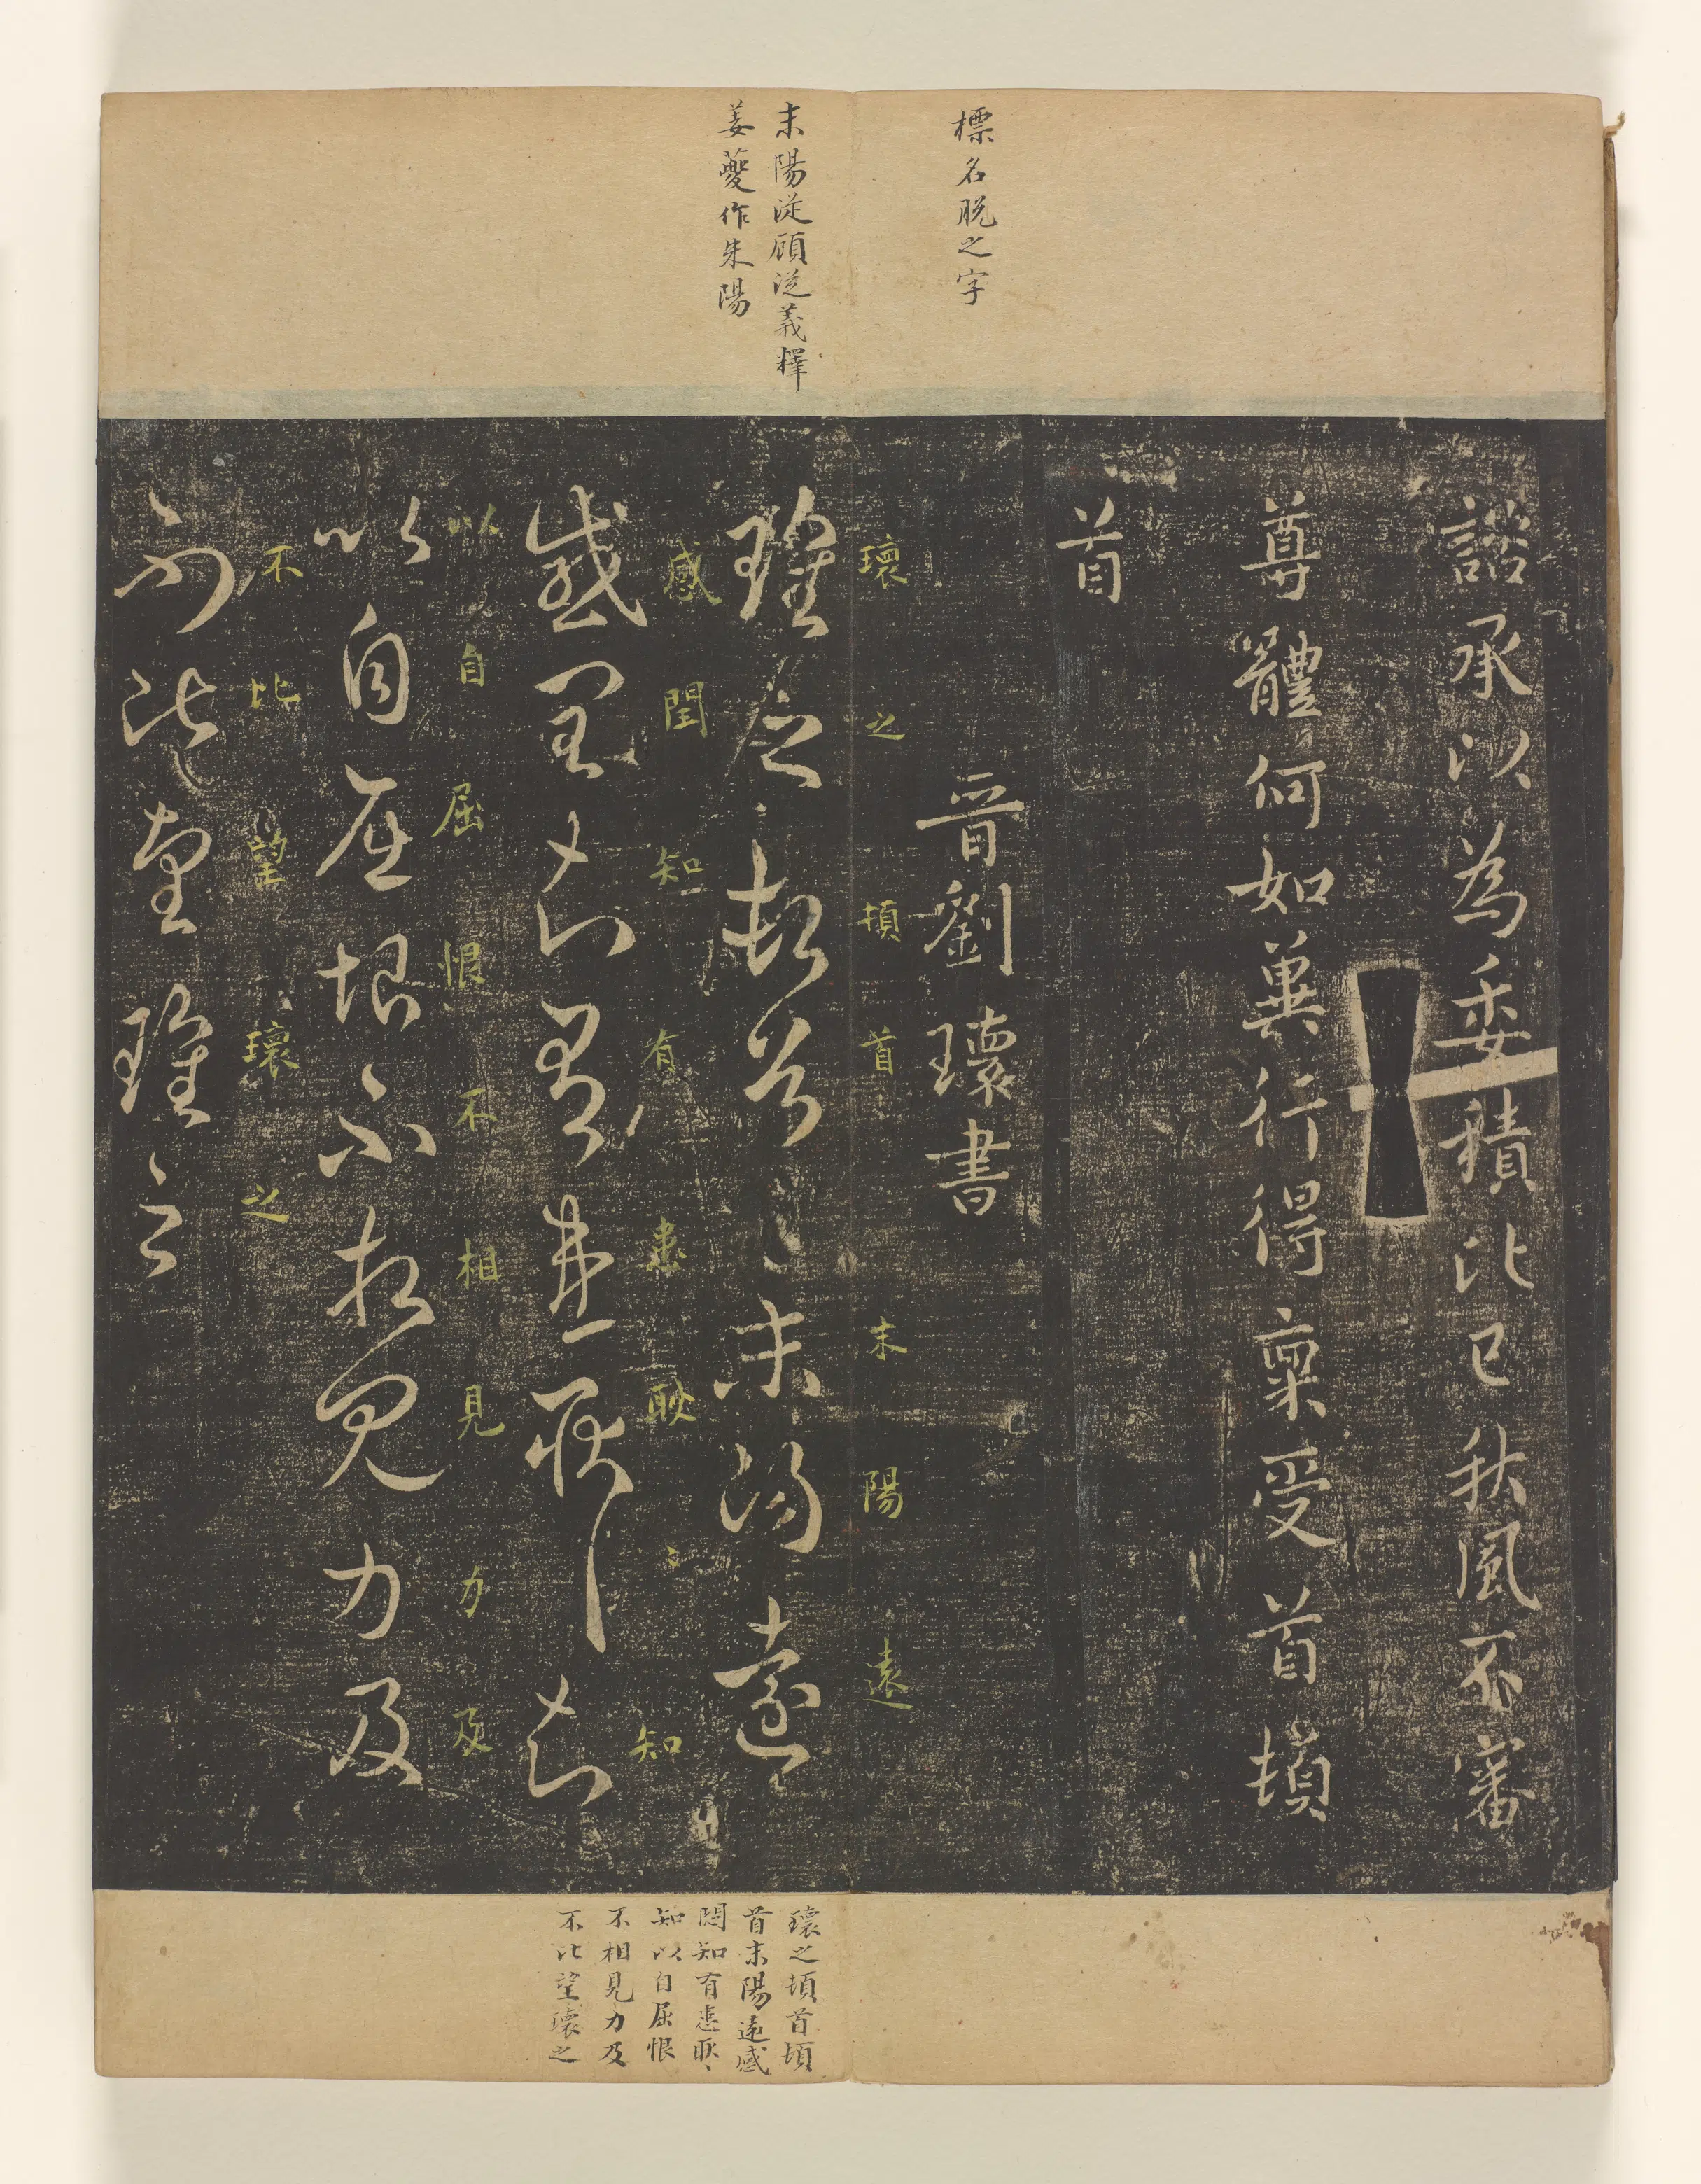 標名脱之字
末陽從顧從義釋
姜夔作朱陽
諮承以為委積比已秋風不審
尊體何如冀行得稟受首頓
首
晉劉瓌書
瓌之頓首頓首末陽遠
瓌之頓首〻末陽遠
感閏知有恙耿〻知
感閏知有恙耿〻知
以自屈恨不相見力及
以自屈恨不相見力及
不比望瓌之
不比望瓌之
瓌之頓首頓
首末陽遠感
閏知有恙耿〻
知以自屈恨
不相見力及
不比望瓌之